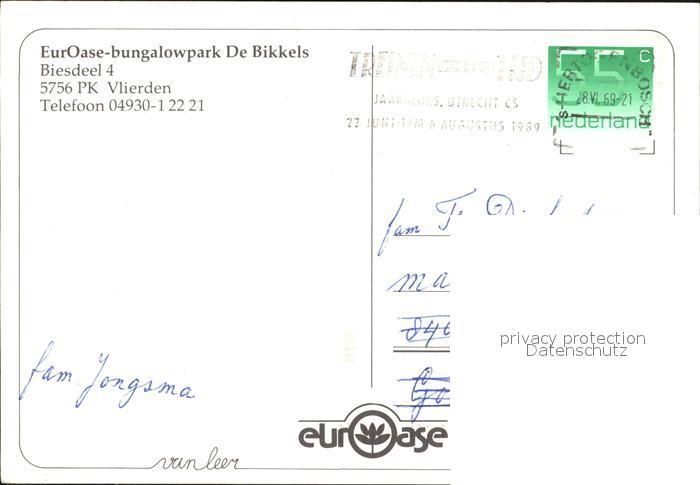 EurOase-bungalowpark De Bikkels
Biesdeel 4
5756 PK Vlierden
Telefoon 04930-1 22 21
JAARBEURS, UTRECHT CS
22 JUNI T/M 6 AUGUSTUS 1989
55 c
nederland
's-HERTOGENBOSCH
28.VI.89-21
fam F.
ma
840
Go
privacy protection
Datenschutz
fam Jongsma
eurOase
van leer